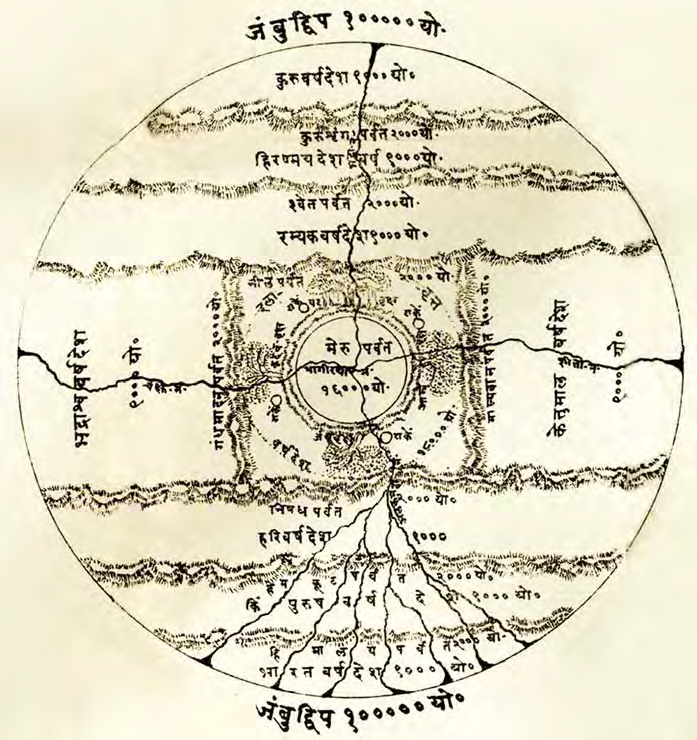 जंबुद्विप १००००० यो॰
कुरुवर्षदेश ९००० यो॰
कुरुशृंग पर्वत २००० यो॰
हिरण्मयदेश वर्ष ९००० यो॰
श्वेत पर्वत २००० यो॰
रम्यकवर्षदेश ९००० यो॰
नील पर्वत २००० यो॰
भद्राश्व वर्षदेश ९००० यो॰
गंधमादन पर्वत २००० यो॰
मेरु पर्वत
१६००० यो॰
माल्यवान पर्वत २००० यो॰
केतुमाल वर्षदेश ९००० यो॰
वर्षदेश
निषध पर्वत २००० यो॰
हरिवर्षदेश ९०००
हेमकूट पर्वत २००० यो॰
किंपुरुष वर्षदेश ९००० यो॰
हिमालय पर्वत २००० यो॰
भारतवर्षदेश ९००० यो॰
जंबुद्विप १००००० यो॰